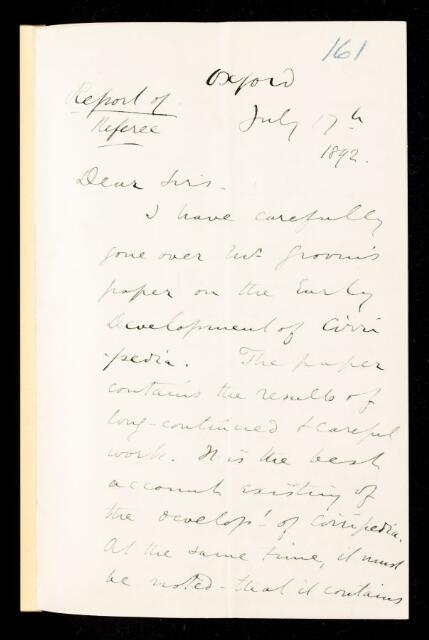 161
Oxford
Report of
Referee
July 17th
1892.
Dear Sirs.
I have carefully
gone over Mr Groom's
paper on the Early
Development of Cirri
-pedia. The paper
contains the results of
long-continued & careful
work. It is the best
account existing of
the develop.t of Cirripedia.
At the same time, it must
be noted that it contains